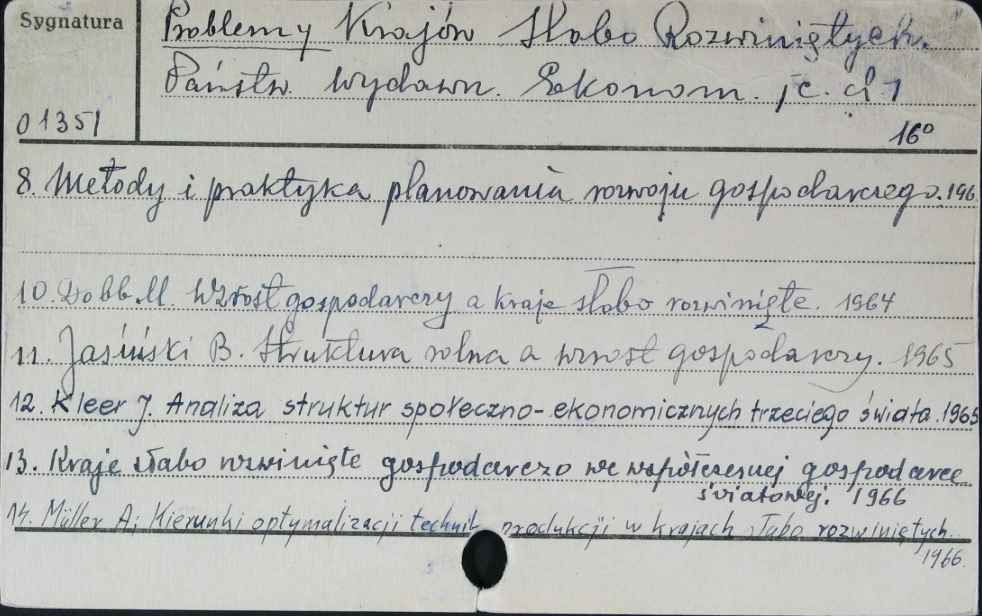 Sygnatura
Problemy Krajów Słabo Rozwiniętych.
Państw. Wydawn. Ekonom. , c. d 1
01351
16°
8. Metody i praktyka planowania rozwoju gospodarczego. 196
10. Dobb M. Wzrost gospodarczy a kraje słabo rozwinięte. 1964
11. Jasiński B. Struktura rolna a wzrost gospodarczy. 1965
12. Kleer J. Analiza struktur społeczno-ekonomicznych trzeciego świata. 1965
13. Kraje słabo rozwinięte gospodarczo we współczesnej gospodarce
światowej. 1966
14. Müller A; Kierunki optymalizacji technik produkcji w krajach słabo rozwiniętych.
1966.